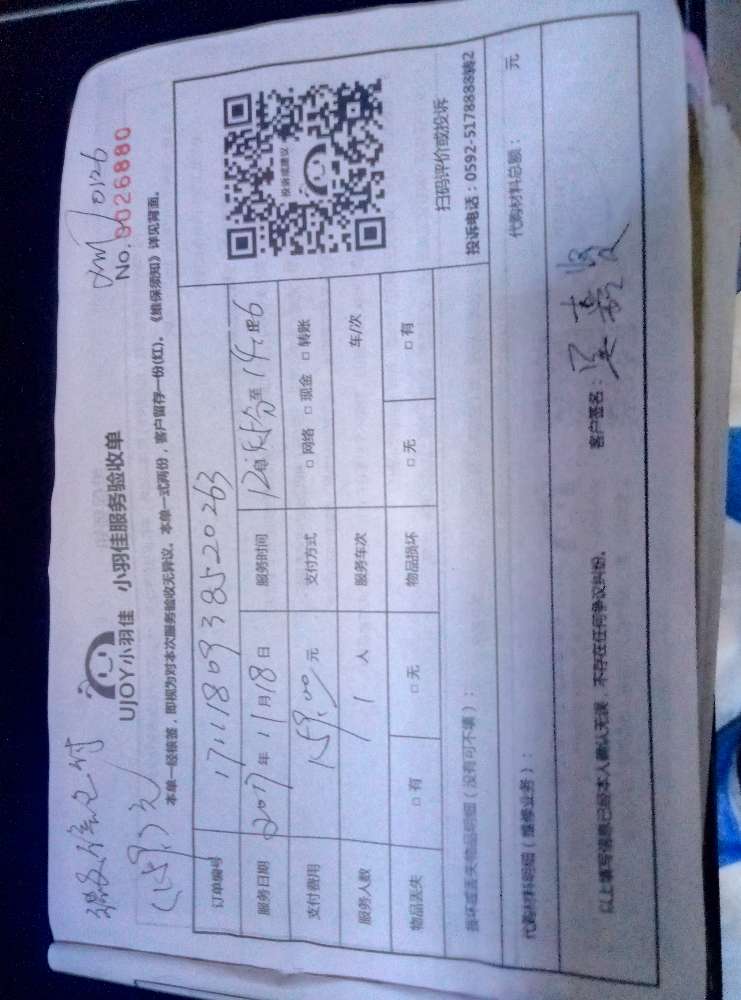 微信支付
(159元)
0126
UJOY小羽佳 小羽佳服务验收单
No.0026880
本单一经核签，即视为对本次服务验收无异议。本单一式两份，客户留存一份(红)。《维保须知》详见背面。
订单编号 1711180938520263
服务日期 2017年11月18日 服务时间 至
支付费用 159.00元 支付方式 □网络 □现金 □转账
服务人数 1人 服务车次 车/次
物品丢失 □有 □无 物品损坏 □无 □有
投诉或建议
扫码评价或投诉
投诉电话：0592-5178888转2
损坏或丢失物品明细（没有可不填）：
代购材料明细（维修业务）： 代购材料总额： 元
以上填写信息已经本人确认无误，不存在任何争议纠纷。 客户签名：